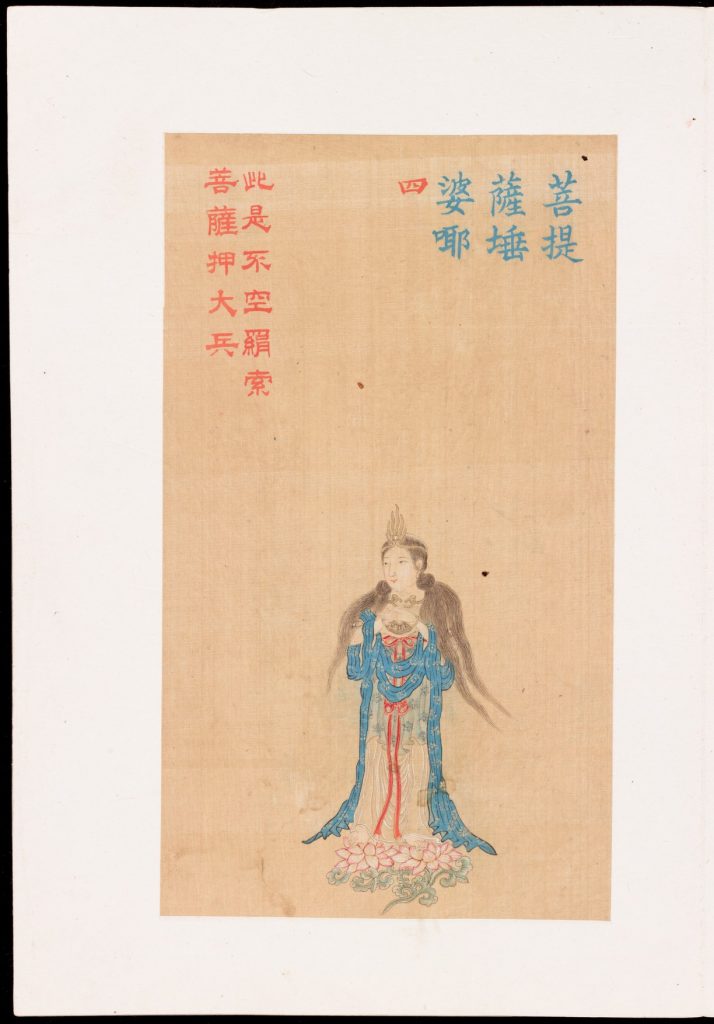 菩提
薩埵
婆耶
四
此是不空絹索
菩薩押大兵